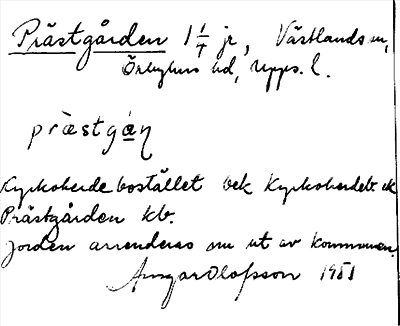 Prästgården 1 1/4 jr, Västlands sn,
Örbyhus hd, Upps. l.
prästgá̱ṇ
Kyrkoherdebostället bek Kyrkoherdeb. ek
Prästgården kb.
Jorden arrenderas nu ut av kommunen.
Ansgar Olofsson 1951